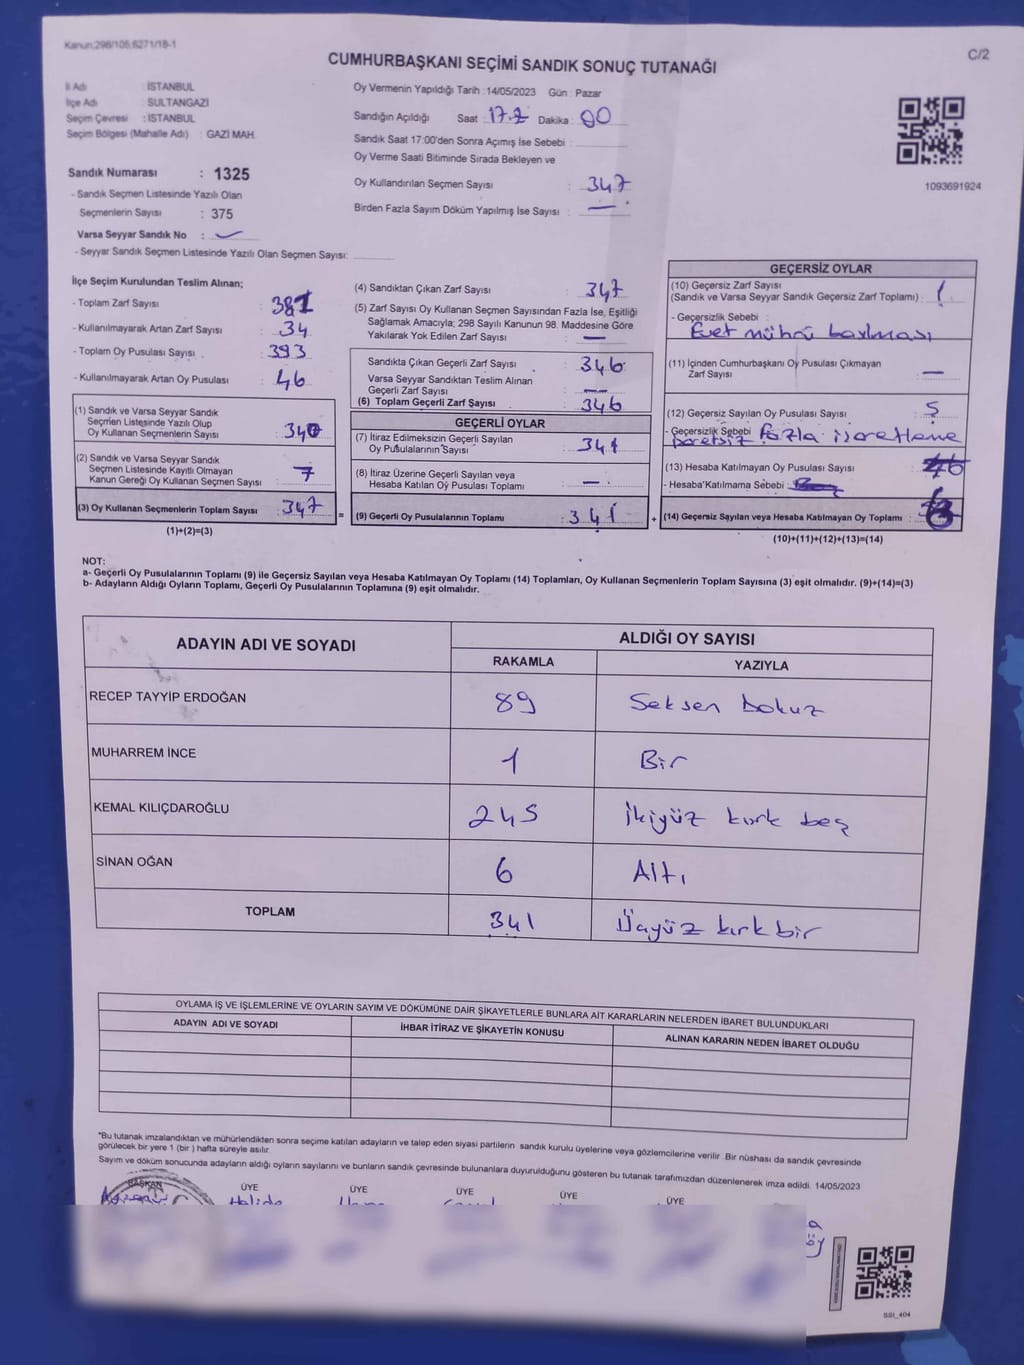 Kanun,298/105,6271/18-1
C/2
CUMHURBAŞKANI SEÇİMİ SANDIK SONUÇ TUTANAĞI
İl Adı : İSTANBUL
İlçe Adı : SULTANGAZİ
Seçim Çevresi : İSTANBUL
Seçim Bölgesi (Mahalle Adı) : GAZİ MAH.
Oy Vermenin Yapıldığı Tarih : 14/05/2023 Gün : Pazar
Sandığın Açıldığı Saat Dakika : 00
Sandık Saat 17:00'den Sonra Açımış İse Sebebi :
Oy Verme Saati Bitiminde Sırada Bekleyen ve
Oy Kullandırılan Seçmen Sayısı : 347
Birden Fazla Sayım Döküm Yapılmış İse Sayısı : —
1093691924
Sandık Numarası : 1325
- Sandık Seçmen Listesinde Yazılı Olan
Seçmenlerin Sayısı : 375
Varsa Seyyar Sandık No :
- Seyyar Sandık Seçmen Listesinde Yazılı Olan Seçmen Sayısı:
İlçe Seçim Kurulundan Teslim Alınan;
- Toplam Zarf Sayısı : 381
- Kullanılmayarak Artan Zarf Sayısı : 34
- Toplam Oy Pusulası Sayısı : 393
- Kullanılmayarak Artan Oy Pusulası : 46
(1) Sandık ve Varsa Seyyar Sandık
Seçmen Listesinde Yazılı Olup
Oy Kullanan Seçmenlerin Sayısı : 340
(2) Sandık ve Varsa Seyyar Sandık
Seçmen Listesinde Kayıtlı Olmayan
Kanun Gereği Oy Kullanan Seçmen Sayısı : 7
(3) Oy Kullanan Seçmenlerin Toplam Sayısı : 347
(1)+(2)=(3)
(4) Sandıktan Çıkan Zarf Sayısı : 347
(5) Zarf Sayısı Oy Kullanan Seçmen Sayısından Fazla İse, Eşitliği
Sağlamak Amacıyla; 298 Sayılı Kanunun 98. Maddesine Göre
Yakılarak Yok Edilen Zarf Sayısı : —
Sandıkta Çıkan Geçerli Zarf Sayısı : 346
Varsa Seyyar Sandıktan Teslim Alınan
Geçerli Zarf Sayısı : —
(6) Toplam Geçerli Zarf Sayısı : 346
GEÇERLİ OYLAR
(7) İtiraz Edilmeksizin Geçerli Sayılan
Oy Pusulalarının Sayısı : 341
(8) İtiraz Üzerine Geçerli Sayılan veya
Hesaba Katılan Oy Pusulası Toplamı : —
= (9) Geçerli Oy Pusulalarının Toplamı : 341 +
GEÇERSİZ OYLAR
(10) Geçersiz Zarf Sayısı
(Sandık ve Varsa Seyyar Sandık Geçersiz Zarf Toplamı) : 1
- Geçersizlik Sebebi :
Evet mührü basılması
(11) İçinden Cumhurbaşkanı Oy Pusulası Çıkmayan
Zarf Sayısı : —
(12) Geçersiz Sayılan Oy Pusulası Sayısı : 5
- Geçersizlik Sebebi : fazla işaretleme
(13) Hesaba Katılmayan Oy Pusulası Sayısı :
- Hesaba Katılmama Sebebi :
(14) Geçersiz Sayılan veya Hesaba Katılmayan Oy Toplamı : 6
(10)+(11)+(12)+(13)=(14)
NOT:
a- Geçerli Oy Pusulalarının Toplamı (9) ile Geçersiz Sayılan veya Hesaba Katılmayan Oy Toplamı (14) Toplamları, Oy Kullanan Seçmenlerin Toplam Sayısına (3) eşit olmalıdır. (9)+(14)=(3)
b- Adayların Aldığı Oyların Toplamı, Geçerli Oy Pusulalarının Toplamına (9) eşit olmalıdır.
ADAYIN ADI VE SOYADI ALDIĞI OY SAYISI
RAKAMLA YAZIYLA
RECEP TAYYİP ERDOĞAN 89 Seksen dokuz
MUHARREM İNCE 1 Bir
KEMAL KILIÇDAROĞLU 245 ikiyüz kırk beş
SİNAN OĞAN 6 Altı
TOPLAM 341 Üçyüz kırk bir
OYLAMA İŞ VE İŞLEMLERİNE VE OYLARIN SAYIM VE DÖKÜMÜNE DAİR ŞİKAYETLERLE BUNLARA AİT KARARLARIN NELERDEN İBARET BULUNDUKLARI
ADAYIN ADI VE SOYADI İHBAR İTİRAZ VE ŞİKAYETİN KONUSU ALINAN KARARIN NEDEN İBARET OLDUĞU
*Bu tutanak imzalandıktan ve mühürlendikten sonra seçime katılan adayların ve talep eden siyasi partilerin sandık kurulu üyelerine veya gözlemcilerine verilir. Bir nüshası da sandık çevresinde
görülecek bir yere 1 (bir) hafta süreyle asılır.
Sayım ve döküm sonucunda adayların aldığı oyların sayılarını ve bunların sandık çevresinde bulunanlara duyurulduğunu gösteren bu tutanak tarafımızdan düzenlenerek imza edildi. 14/05/2023
BAŞKAN ÜYE ÜYE ÜYE ÜYE ÜYE
SSI_404